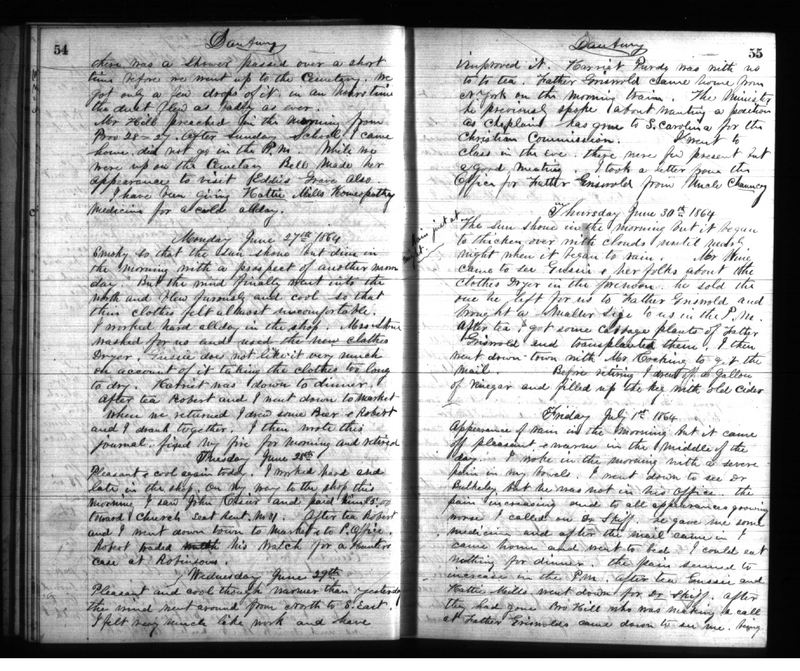 54
Danbury
there was a shower passed over a short
time before we went up to the Cemetery. We
got only a few drops of it. in an hours time
the dust flew as badly as ever.
Mr Hill preached in the morning from
Bro 28-27. After Sunday School I came
home. did not go in the P.M. While we
were up on the Cemetery Bell made her
appearance to visit Eddis Grave also
I have been giving Hattie Mills Homeopathy
Medicine for a cold all day.
Monday June 27th 1864
Smoky so that the sun shone but dim in
the morning with a prospect of another warm
day. But the wind finally went into the
North and flew furiously and cool so that
thin clothes felt almost uncomfortable.
I worked hard all day in the shop. Mrs
washed for us and used the new clothes
Dryer. Gussie does not like it very much
on account of it taking the clothes too long
to dry. Harriet was down to dinner.
After tea Robert and I went down to Market
When we returned I drew some Beer & Robert
and I drank together. I then wrote this
journal. fixed my fire for morning and retired
Tuesday June 28th
Pleasant & cool again today. I worked hard and
late in the shop. On my way to the shop this
morning I saw John and paid him
toward Church Seat Rent. After tea Robert
and I went down town to Market & to P. Office.
Robert traded his Watch for a Hunters
case at Robinsons.
Wednesday June 29th
Pleasant and cool though warmer than yesterday
the wind went around from North to S. East.
I felt very much like work and have
55
Danbury
improved it. Harriet Purdy was with us
to tea. Father Griswold came home from
N. York on the morning train. The Minister
he previously spoke about wanting a position
as Chaplain has gone to S. Carolina for the
Christian Commission. I went to
class in the eve. there were few present but
a good meeting. I took a letter from the
Office for Father Griswold from Uncle Chauncy
Thursday June 30th 1864
The sun shone in the morning but it began
to thicken over with clouds until near
night when it began to rain. Mr Wing
came to see Gussie & her folks about the
Clothes Dryer in the forenoon. he sold the
one he left for us to Father Griswold and
brought a smaller size to us in the P.M.
After tea I got some cabbage plants of Father
Griswold and transplanted them. I then
went down town with Mrs Hocking to get the
mail. Before retiring I went off a Gallon
of Vinegar and filled up the keg with old Cider
Friday July 1st 1864
Appearance of rain in the morning but it came
off pleasant & warm in the middle of the
day. I woke in the morning with a severe
pain in my bowels. I went down to see Dr
Bulkeley but he was not in his Office. the
pain increasing and to all appearances growing
worse I called on Dr. he gave me some
medicine and after the mail came in I
came home and went to bed. I could eat
nothing for dinner. the pain seemed to
increase in the P.M. after tea Gussie and
Hattie Mills went down for Dr. after
they had gone Bro Hill who was making a call
at Father Griswolds came down to see me. being